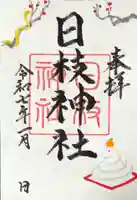 奉拝
日枝神社
令和七年一月 日